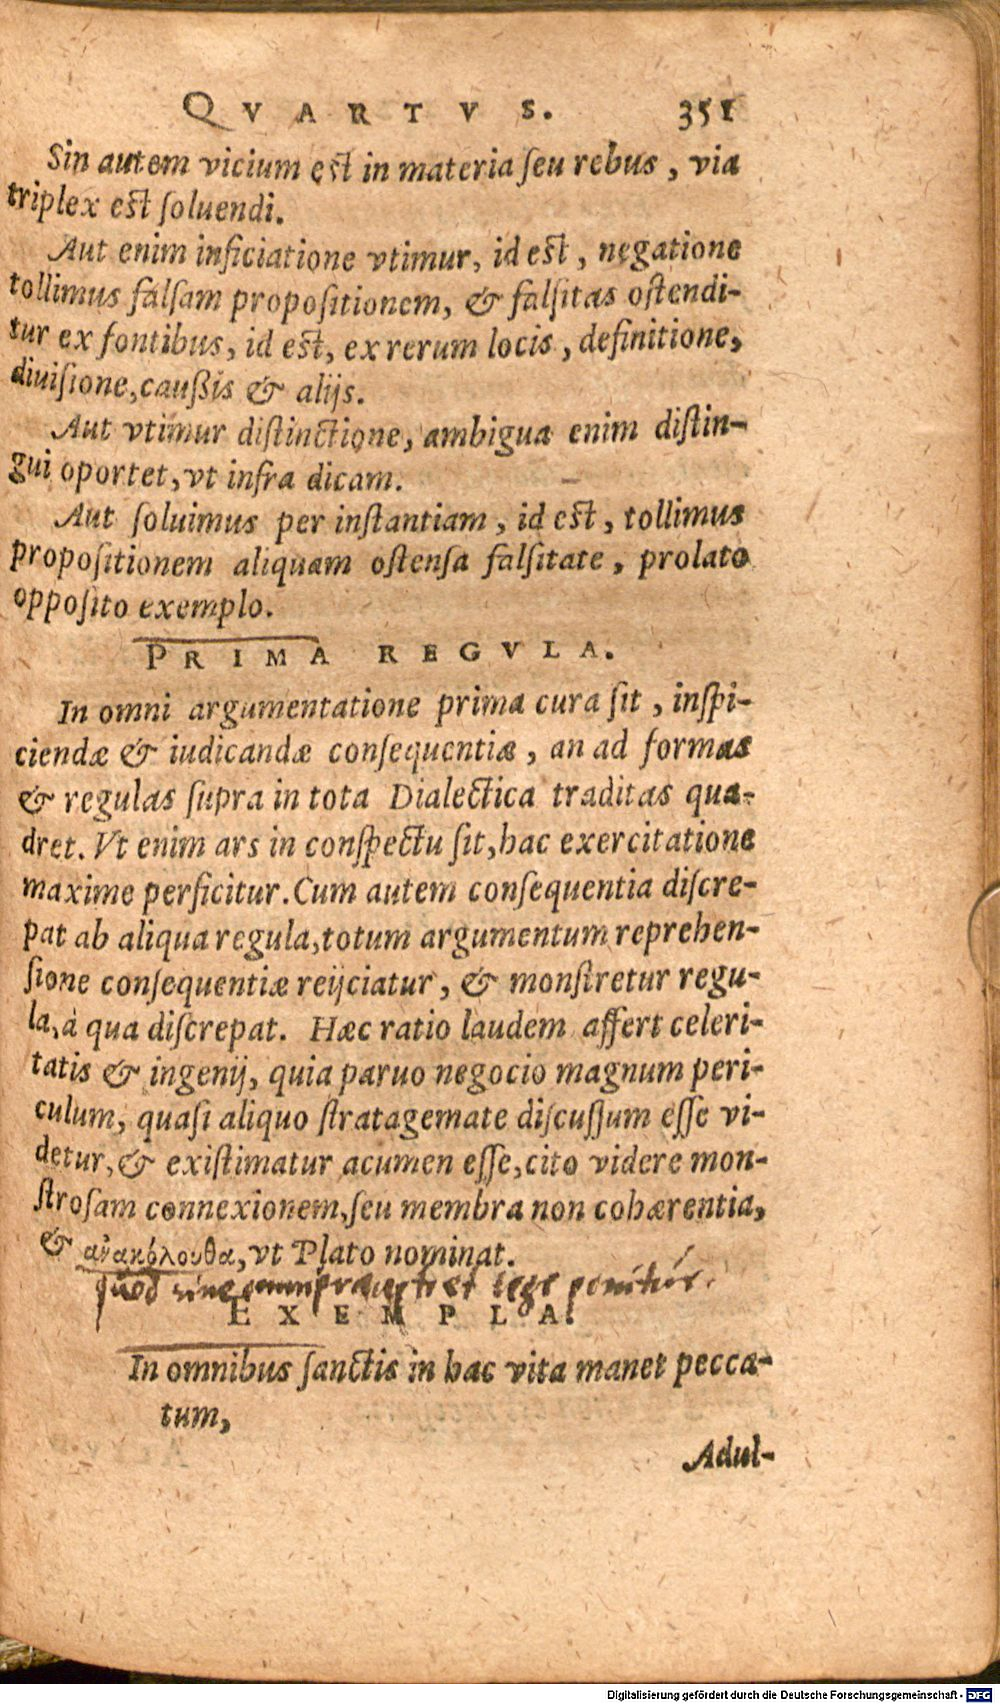 QVARTVS. 351
Sin autem vicium est in materia ſeu rebus, via
triplex est ſoluendi.
Aut enim inficiatione vtimur, id est, negatione
tollimus falſam propoſitionem, & falſitas oſtendi-
tur ex fontibus, id est, ex rerum locis, definitione,
diuiſione, cauſſis & alijs.
Aut vtimur diſtinctione, ambigua enim diſtin-
gui oportet, vt infra dicam.
Aut ſoluimus per inſtantiam, id est, tollimus
propoſitionem aliquam oſtenſa falſitate, prolato
oppoſito exemplo.
PRIMA REGVLA.
In omni argumentatione prima cura ſit, inſpi-
ciendæ & iudicandæ conſequentiæ, an ad formas
& regulas ſupra in tota Dialectica traditas qua-
dret. Vt enim ars in conſpectu ſit, hac exercitatione
maxime perficitur. Cum autem conſequentia diſcre-
pat ab aliqua regula, totum argumentum reprehen-
ſione conſequentiæ reijciatur, & monſtretur regu-
la, à qua diſcrepat. Hæc ratio laudem affert celeri-
tatis & ingenij, quia paruo negocio magnum peri-
culum, quaſi aliquo ſtratagemate diſcuſſum eſſe vi-
detur, & exiſtimatur acumen eſſe, cito videre mon-
ſtroſam connexionem, ſeu membra non cohærentia,
& ἀνακόλουθα, vt Plato nominat.
quod sine et lege ponitur.
EXEMPLA.
In omnibus ſanctis in hac vita manet pecca-
tum,
Adul-
Digitalisierung gefördert durch die Deutsche Forschungsgemeinschaft - DFG